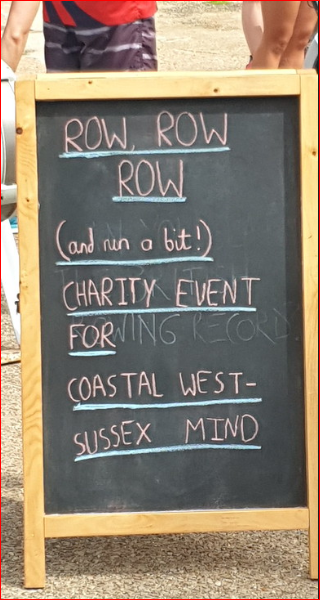 ROW, ROW
ROW
(and run a bit!)
CHARITY EVENT
FOR
COASTAL WEST-
SUSSEX MIND